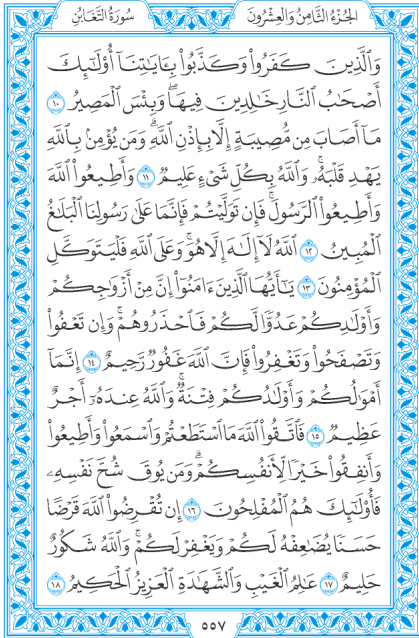 الجُزْءُ الثَّامِنُ وَالعِشْرُونَ
سُورَةُ التَّغَابُنِ
وَٱلَّذِينَ كَفَرُوا۟ وَكَذَّبُوا۟ بِـَٔايَـٰتِنَآ أُو۟لَـٰٓئِكَ
أَصْحَـٰبُ ٱلنَّارِ خَـٰلِدِينَ فِيهَا ۖ وَبِئْسَ ٱلْمَصِيرُ ١٠
مَآ أَصَابَ مِن مُّصِيبَةٍ إِلَّا بِإِذْنِ ٱللَّهِ ۗ وَمَن يُؤْمِنۢ بِٱللَّهِ
يَهْدِ قَلْبَهُۥ ۚ وَٱللَّهُ بِكُلِّ شَىْءٍ عَلِيمٌ ١١ وَأَطِيعُوا۟ ٱللَّهَ
وَأَطِيعُوا۟ ٱلرَّسُولَ ۚ فَإِن تَوَلَّيْتُمْ فَإِنَّمَا عَلَىٰ رَسُولِنَا ٱلْبَلَـٰغُ
ٱلْمُبِينُ ١٢ ٱللَّهُ لَآ إِلَـٰهَ إِلَّا هُوَ ۚ وَعَلَى ٱللَّهِ فَلْيَتَوَكَّلِ
ٱلْمُؤْمِنُونَ ١٣ يَـٰٓأَيُّهَا ٱلَّذِينَ ءَامَنُوٓا۟ إِنَّ مِنْ أَزْوَٰجِكُمْ
وَأَوْلَـٰدِكُمْ عَدُوًّا لَّكُمْ فَٱحْذَرُوهُمْ ۚ وَإِن تَعْفُوا۟
وَتَصْفَحُوا۟ وَتَغْفِرُوا۟ فَإِنَّ ٱللَّهَ غَفُورٌ رَّحِيمٌ ١٤ إِنَّمَآ
أَمْوَٰلُكُمْ وَأَوْلَـٰدُكُمْ فِتْنَةٌ ۚ وَٱللَّهُ عِندَهُۥٓ أَجْرٌ
عَظِيمٌ ١٥ فَٱتَّقُوا۟ ٱللَّهَ مَا ٱسْتَطَعْتُمْ وَٱسْمَعُوا۟ وَأَطِيعُوا۟
وَأَنفِقُوا۟ خَيْرًا لِّأَنفُسِكُمْ ۗ وَمَن يُوقَ شُحَّ نَفْسِهِۦ
فَأُو۟لَـٰٓئِكَ هُمُ ٱلْمُفْلِحُونَ ١٦ إِن تُقْرِضُوا۟ ٱللَّهَ قَرْضًا
حَسَنًا يُضَـٰعِفْهُ لَكُمْ وَيَغْفِرْ لَكُمْ ۚ وَٱللَّهُ شَكُورٌ
حَلِيمٌ ١٧ عَـٰلِمُ ٱلْغَيْبِ وَٱلشَّهَـٰدَةِ ٱلْعَزِيزُ ٱلْحَكِيمُ ١٨
٥٥٧